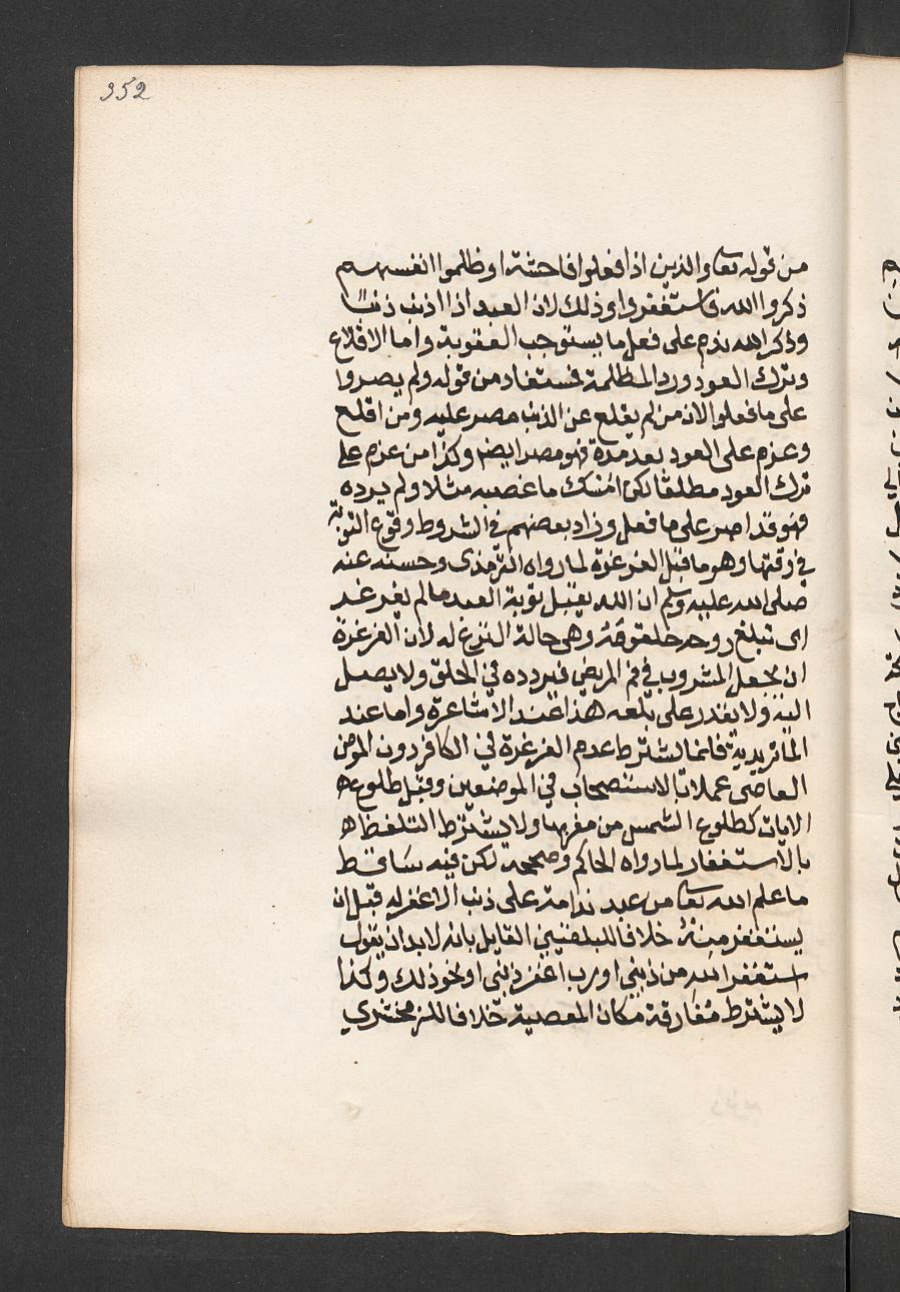 352
من قوله تعا والذين اذا فعلوا فاحشة او ظلموا انفسهم
ذكروا الله فاستغفروا وذلك لان العبد اذا اذنب ذنبا
وذكر الله ندم على فعل ما يستوجب العقوبة واما الاقلاع
وترك العود ورد المظلمة فستفاد من قوله ولم يصروا
على ما فعلوا لان من لم يقلع عن الذنب مصر عليه ومن اقلع
وعزم على العود بعد مدة فهو مصر ايضا وكذا من عزم على
ترك العود مطلقا لكن امسك ما غصبه مثلا ولم يرده
فهو قد اصر على ما فعل وزاد بعضهم في الشروط وقوع التوبة
في وقتها وهو ما قبل الغرغرة لما رواه الترمذى وحسنه عنه
صلى الله عليه وسلم ان الله يقبل توبة العبد ما لم يغرغر
اى تبلغ روحه حلقومه وهى حالة النزع له لان الغرغرة
ان يجعل المشروب في فم المريض فيردده في الحلق ولا يصل
اليه ولا يقدر على بلعه هذا عند الاشاعرة واما عند
الماتريدية فانما يشترط عدم الغرغرة في الكافر دون المومن
العاصى عملا بالاستصحاب في الموضعين وقبل طلوع
الايات كطلوع الشمس من مغربها ولا يشترط التلفظ
بالاستغفار لما رواه الحاكم وصححه لكن فيه ساقط
ما علم الله تعا من عبد ندامة على ذنب الا غفر له قبل ان
يستغفر منه خلافا للبلقيني القايل بانه لا بد ان يقول
استغفر الله من ذنبى او رب اغفر ذنبى او نحو ذلك وكذا
لا يشترط مفارقة مكان المعصية خلافا للزمخشري